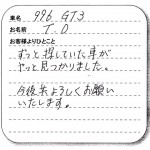 車名 996 GT3
お名前 T.O
お客様よりひとこと
ずっと探していた車が
やっと見つかりました。
今後共よろしくお願い
いたします。